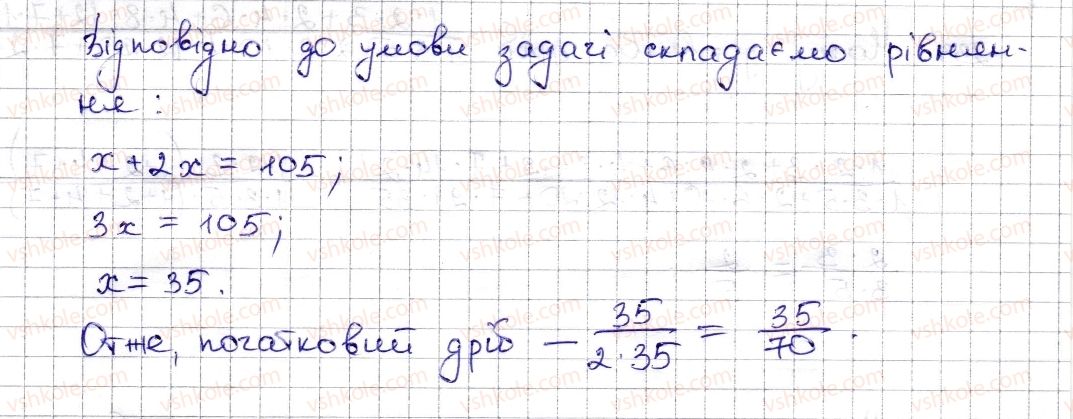 Відповідно до умови задачі складаємо рівнян-
ня :
x + 2x = 105;
3x = 105;
x = 35.
Отже, початковий дріб – 35/(2·35) = 35/70.